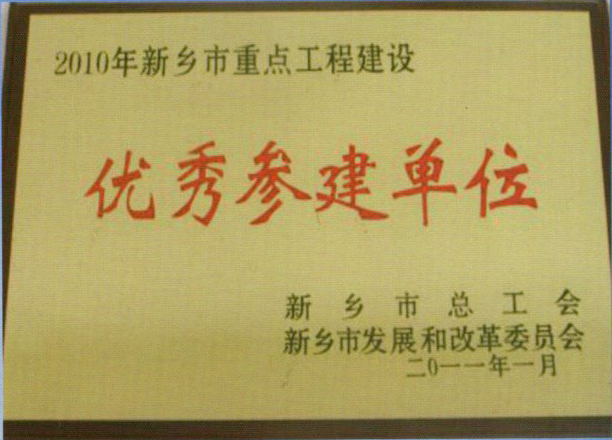 2010年新乡市重点工程建设
优秀参建单位
新乡市总工会
新乡市发展和改革委员会
二0一一年一月